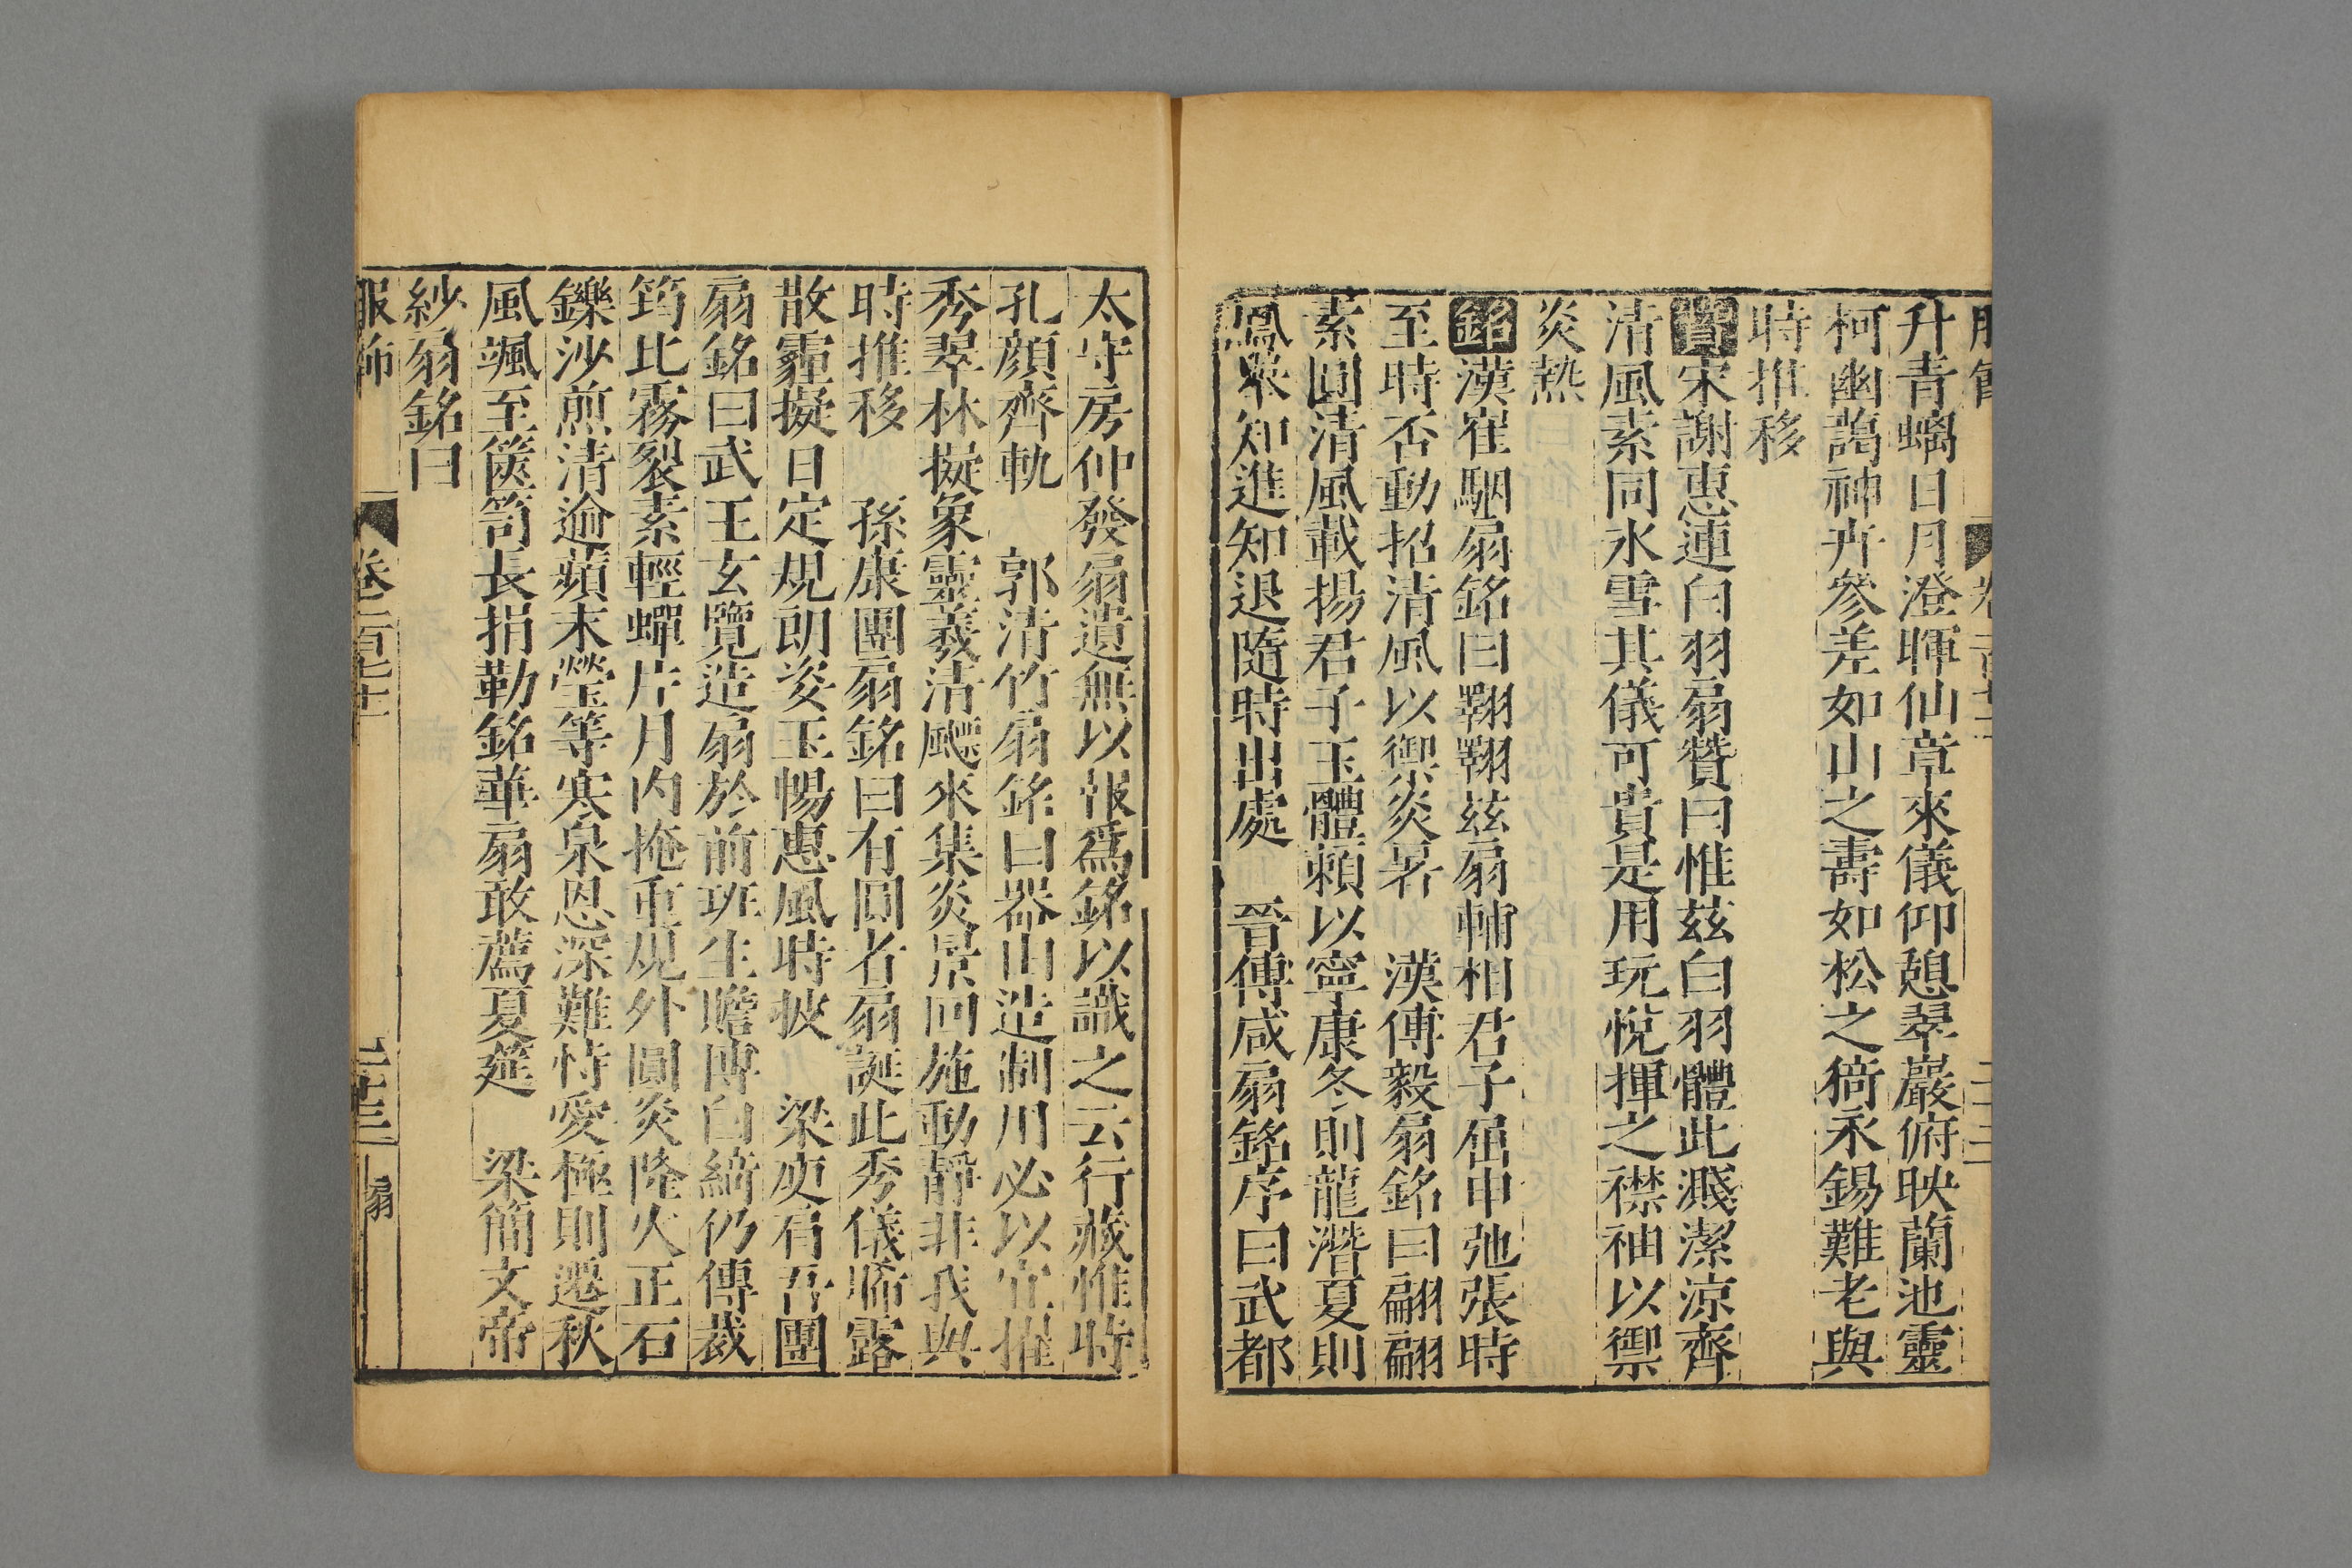 升青蠣日月澄暉仙章來儀仰憩翠巖俯映蘭池靈
柯幽藹神卉參差如山之壽如松之猗永錫難老與
時推移
贊宋謝惠連白羽扇贊曰惟茲白羽體此濺潔涼齊
清風素同氷雪其儀可貴是用玩悅揮之襟袖以禦
炎熱
銘漢崔駰扇銘曰翩翩兹扇輔相君子屈申弛張時
至時否動招清風以禦炎暑 漢傅毅扇銘曰翩翩
素圓清風載揚君子玉體賴以寧康冬則龍潛夏則
鳳舉知進知退隨時出處 晉傅咸扇銘序曰武都
太守房仲發扇遺無以報爲銘以識之云行藏惟時
孔顏齊軌 郭清竹扇銘曰器由造制用必以宜擢
秀翠林擬象靈羲沽飈來集炎景回施動靜非我與
時推移 孫康團扇銘曰有圓者扇誕此秀儀晞露
散霾擬日定規朗姿玉暢惠風時披 梁庾肩吾團
扇銘曰武王玄覽造扇於前班生贍博白綺仍傳裁
筠比霧裂素輕蟬片月内掩重規外圓炎隆火正石
鑠沙煎清逾蘋末瑩等寒泉恩深難恃愛極則遷秋
風颯至篋笥長捐勒銘華扇敢薦夏筵 梁簡文帝
紗扇銘曰
服飾 卷二百七十 二十三 扇